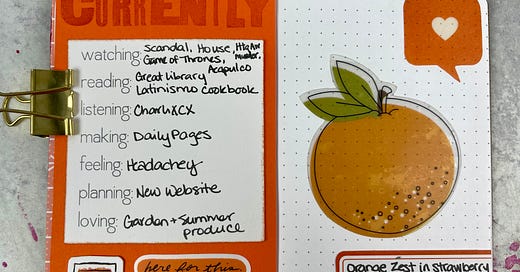 CURRENTLY
watching: Scandal, House, Htg Awy
Game of Thrones, Murder,
Acapulco
reading: Great Library
Latinísmo Cookbook
listening: Charli XCX
making: Daily Pages
feeling: Headachey
planning: New Website
loving: Garden + Summer
produce
here for this
Orange Zest in strawberry